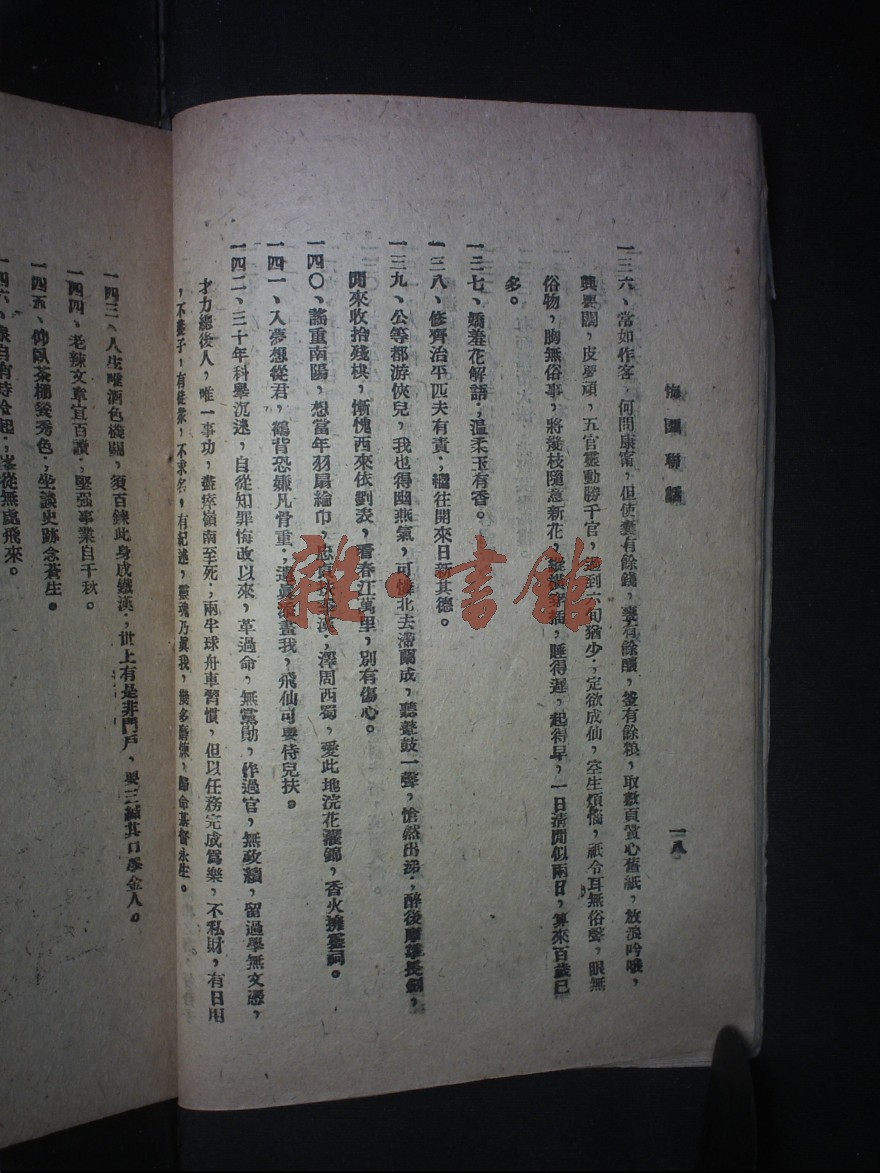 悔園聯話
一八
一三六、常如作客，何問康甯，但使囊有餘錢，甕有餘釀，釜有餘粮，取數頁賞心舊紙，放浪吟哦，
興要闊，皮要頑，五官靈動勝千官，過到六旬猶少；定欲成仙，空生煩惱，祇令耳無俗聲，眼無
俗物，胸無俗事，將幾枝隨意新花，縱橫穿插，睡得遲，起得早，一日清閒似兩日，算來百歲已
多。
一三七、嬌羞花解語；溫柔玉有香。
一三八、修齊治平匹夫有責；繼往開來日新其德。
一三九、公等都游俠兒，我也得幽燕氣，可惜北去滯蘭成，聽鼙鼓一聲，愴然出涕；醉後摩挲長劍，
閒來收拾殘棋，慚愧西來依劉表，看春江萬里，別有傷心。
一四〇、謠重南陽，想當年羽扇綸巾，忠貞扶季漢；澤周西蜀，愛此地浣花濯錦，香火擁靈祠。
一四一、入夢想從君，鶴背恐嫌凡骨重；還眞添畫我，飛仙可要侍兒扶。
一四二、三十年科舉沉迷，自從知罪悔改以來，革過命，無黨勛，作過官，無政績，留過學無文憑，
才力總後人，唯一事功，盡瘁嶺南至死；兩半球舟車習慣，但以任務完成爲樂，不私財，有日用
，不養子，有徒衆，不求名，有紀述，靈魂乃眞我，幾多磨煉，歸命基督永生。
一四三、人生唯酒色機關，須百鍊此身成鐵漢；世上有是非門戶，要三緘其口學金人。
一四四、老辣文章宜百讀；堅强事業自千秋。
一四五、仰臥茶棚餐秀色；坐談史跡念蒼生。
一四六、泉自有時冷起；峯從無處飛來。
雜·書館